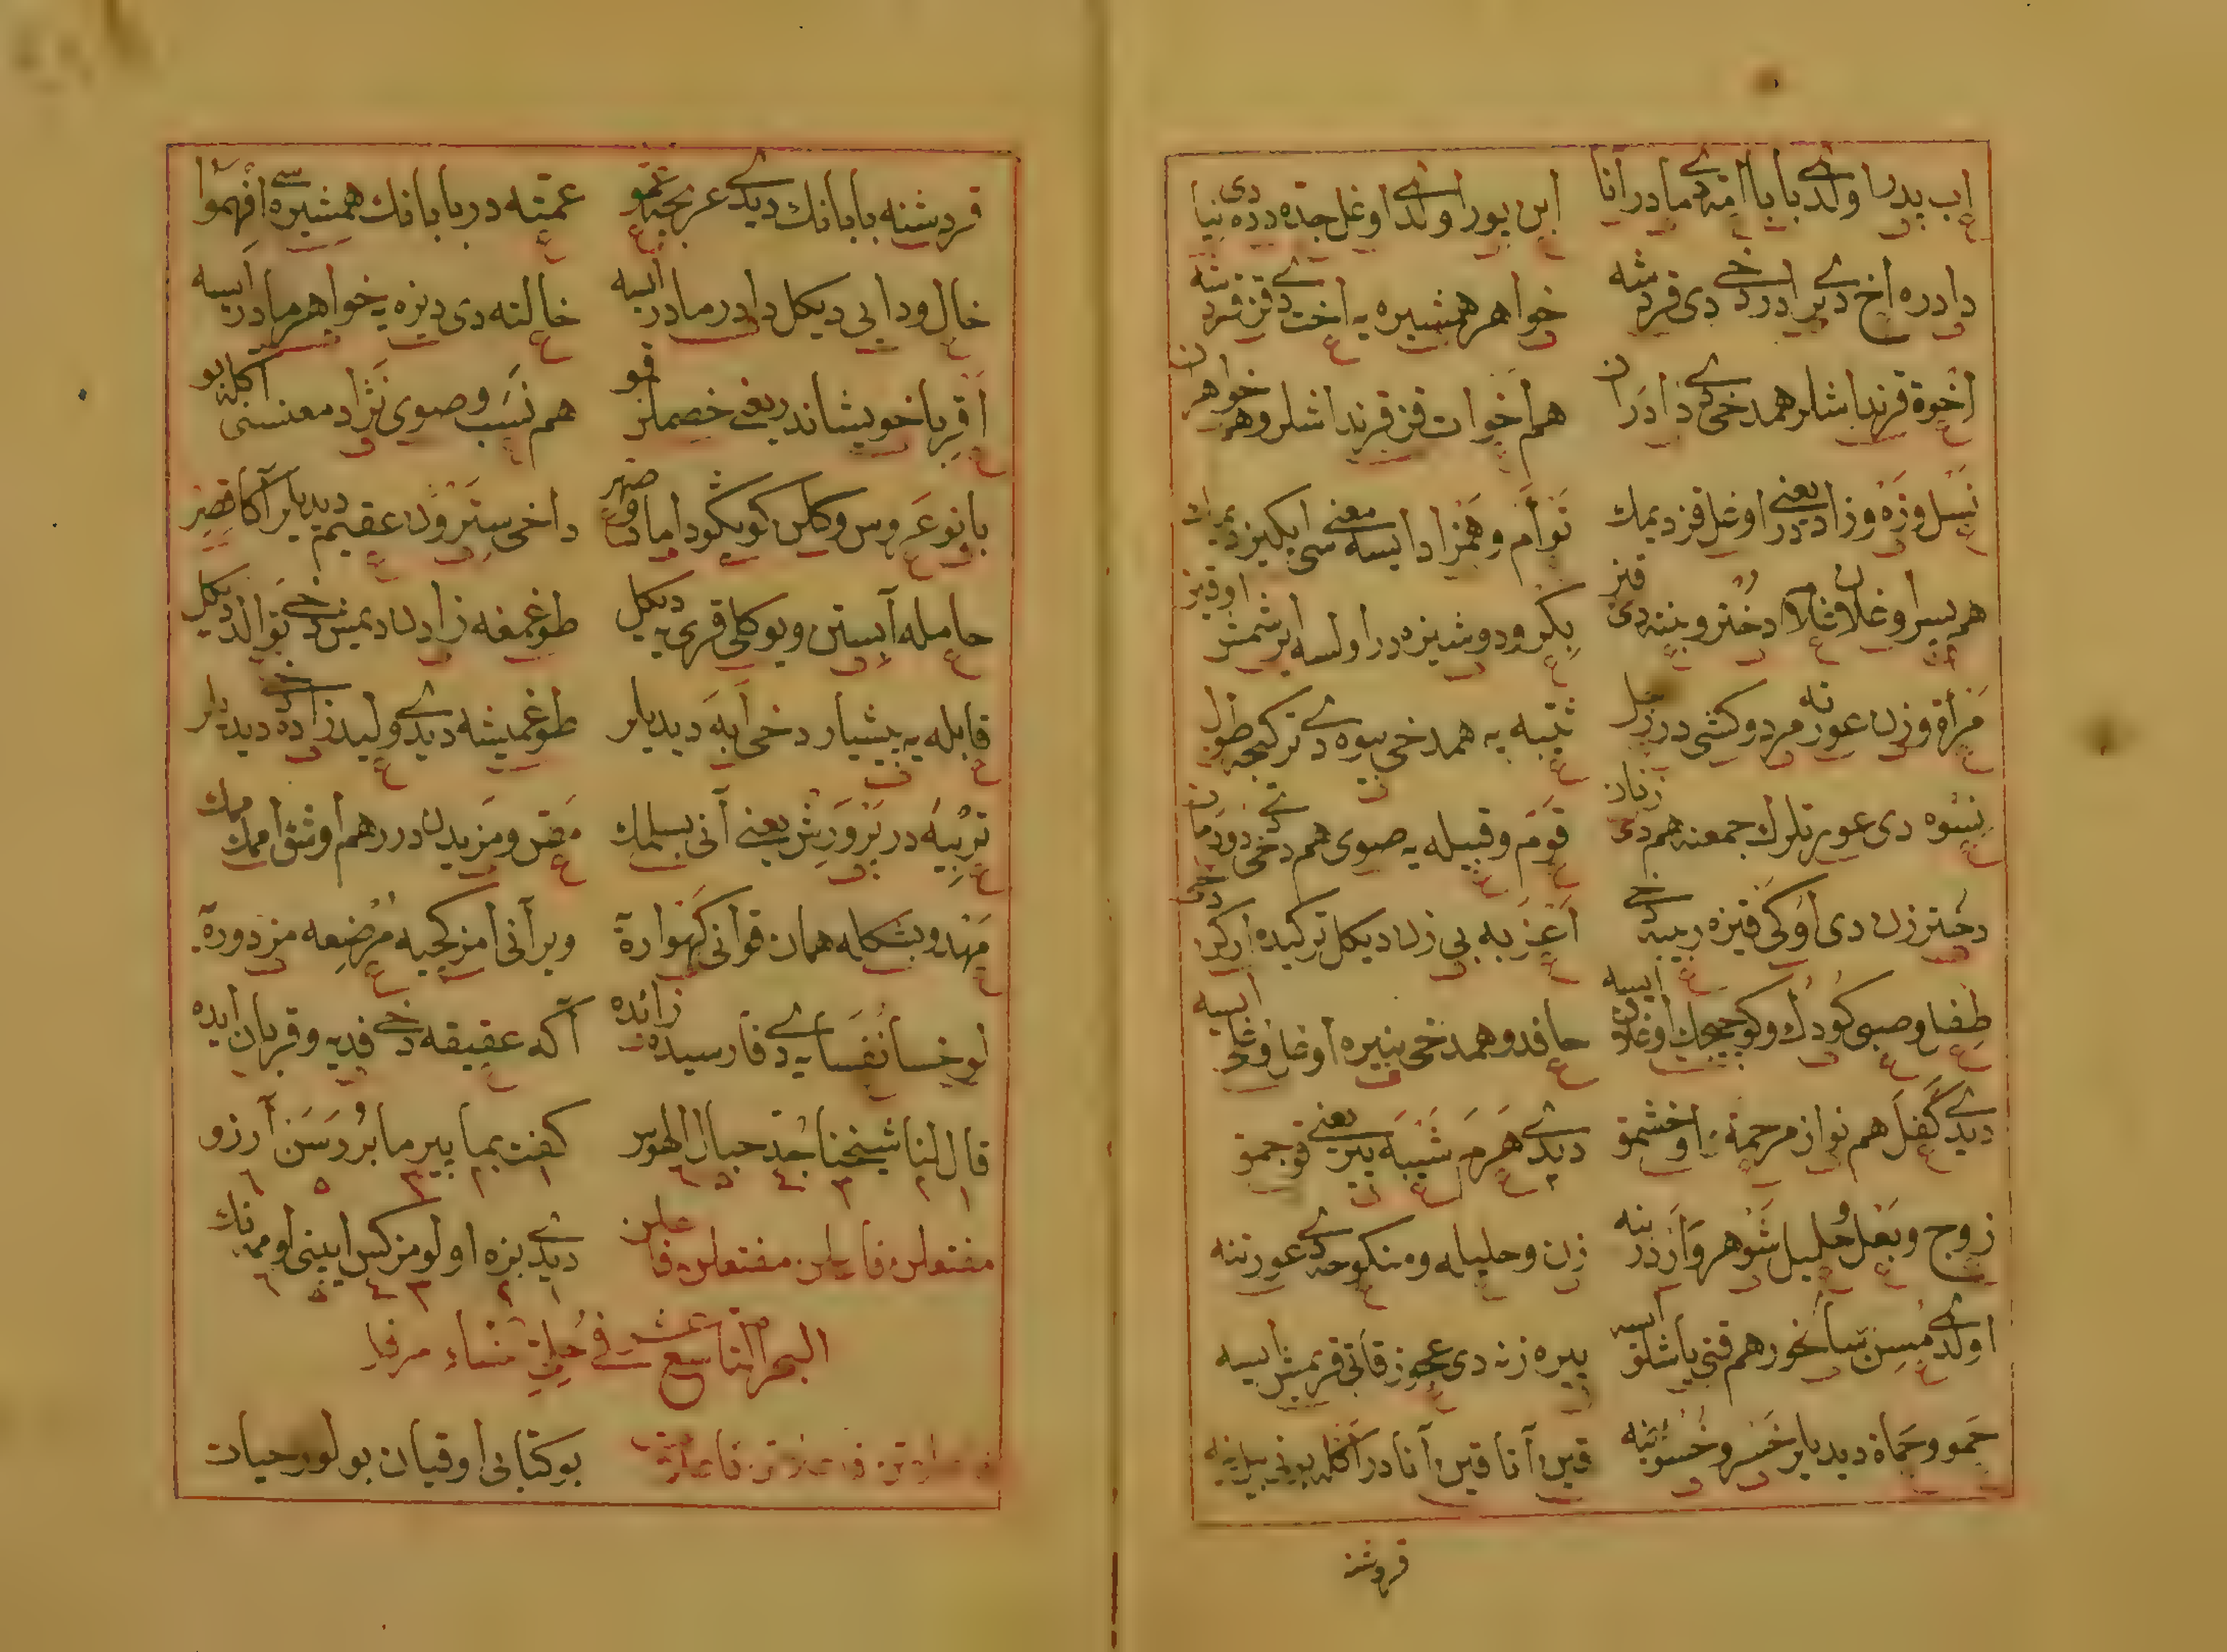 اب پدر اولدی بابا امّ دی مادر انا ابن پور اولدی اوغل جدّه دده دی نیا
دادره اخ دی برادر دخی دی قردشه خواهر همشیره یه اخت دی قز قردشنه
اخوة قرنداشلر همدخی دی دادران هم اخوات قز قرنداشلر و هم خواهران
نسل و زه و زاد در یعنی اوغل قز دیمك توأم و همزاد ایسه معنی سی ایکیز
هم پسر اوغلان غلام دختر و بنت دی قیز بکر و دوشیزه در اولسه ایرشمش او قیز
مرأة و زن عورته مرد و کشی در رجل ثیّبه یه همدخی بیوه دی ترکجه طول
نسوه دی عورتلرك جمعنه هم دی زنان قوم و قبیله یه صوی هم دخی دی دودمان
دختر زن دی اوکی قیزه ربیبه دخی اعزبه بی زن دیکل ترکیده ارکن دخی
طفل و صبی کودك و کوجیجك اوغلان ایسه حافد و همدخی نبیره اوغل اوغلی ایسه
دیدی کفل هم نواز مرحمة اوخشمق دیدی هرم شیبه پیر یعنی قوجمق
زوج و بعل حلیل شوهر و ار در بنه زن و حلیله و منکوحه دی عورتنه
اولدی مسن سالخور هم قتی یاشلو ایسه پیره زنه دی عجوز قاتی قریمش ایسه
حمو و حماة دیدیلر خسر و خسو قین آتا قین آنا در اکله بونی
قردش
قردشنه بابانك دیدی عربجه عمّو عمّته در بابانك همشیره سی افهموا
خال و دایی دیکل دادر مادر ایسه خالته دی دیزه یه خواهر مادر ایسه
اقربا خویشاندر یعنی خصملر قو هم نسب و صوی نژاد معنسنی اکله بو
بانو عروس و کلن کویکو داماد و صهر داخی سترون عقیم دیدیلر آکا قصر
حامله آبستن و یوکلی قری یه دیکل طوغمغه زادن دیمش دخی توالد دیکل
قابله یه پیشیار دخی ابه دیدیلر طوغمیشه دیدی ولید زاده دخی دیدیلر
تربیه در پرورش یعنی آنی بسلمك مصّ و مزیدن در هم اوشق امّمك
مهد و بشکله همان قوانی کهواره ویر آنی امزکجیه مرضعه مزدوره
لوخسا نفسایه دی فارسیده زائده آکه عقیقه دخی فدیه و قربان ایده
قال لنا شیخنا جدّ حبال الهوس کفت بما پیر ما برد رسن آرزو
١ ٢ ٣ ٤ ٥ ٦ ١ ٢ ٣ ٤ ٥ ٦
مفتعلن فاعلن مفتعلن فاعلن دیدی بزه اولومز کس ایپینی اومه نك
١ ٢ ٣ ٤ ٥ ٦
البحر التاسع عشر فی
فاعلاتن فاعلاتن فاعلات بو کتابی اوقیان بولور حیات